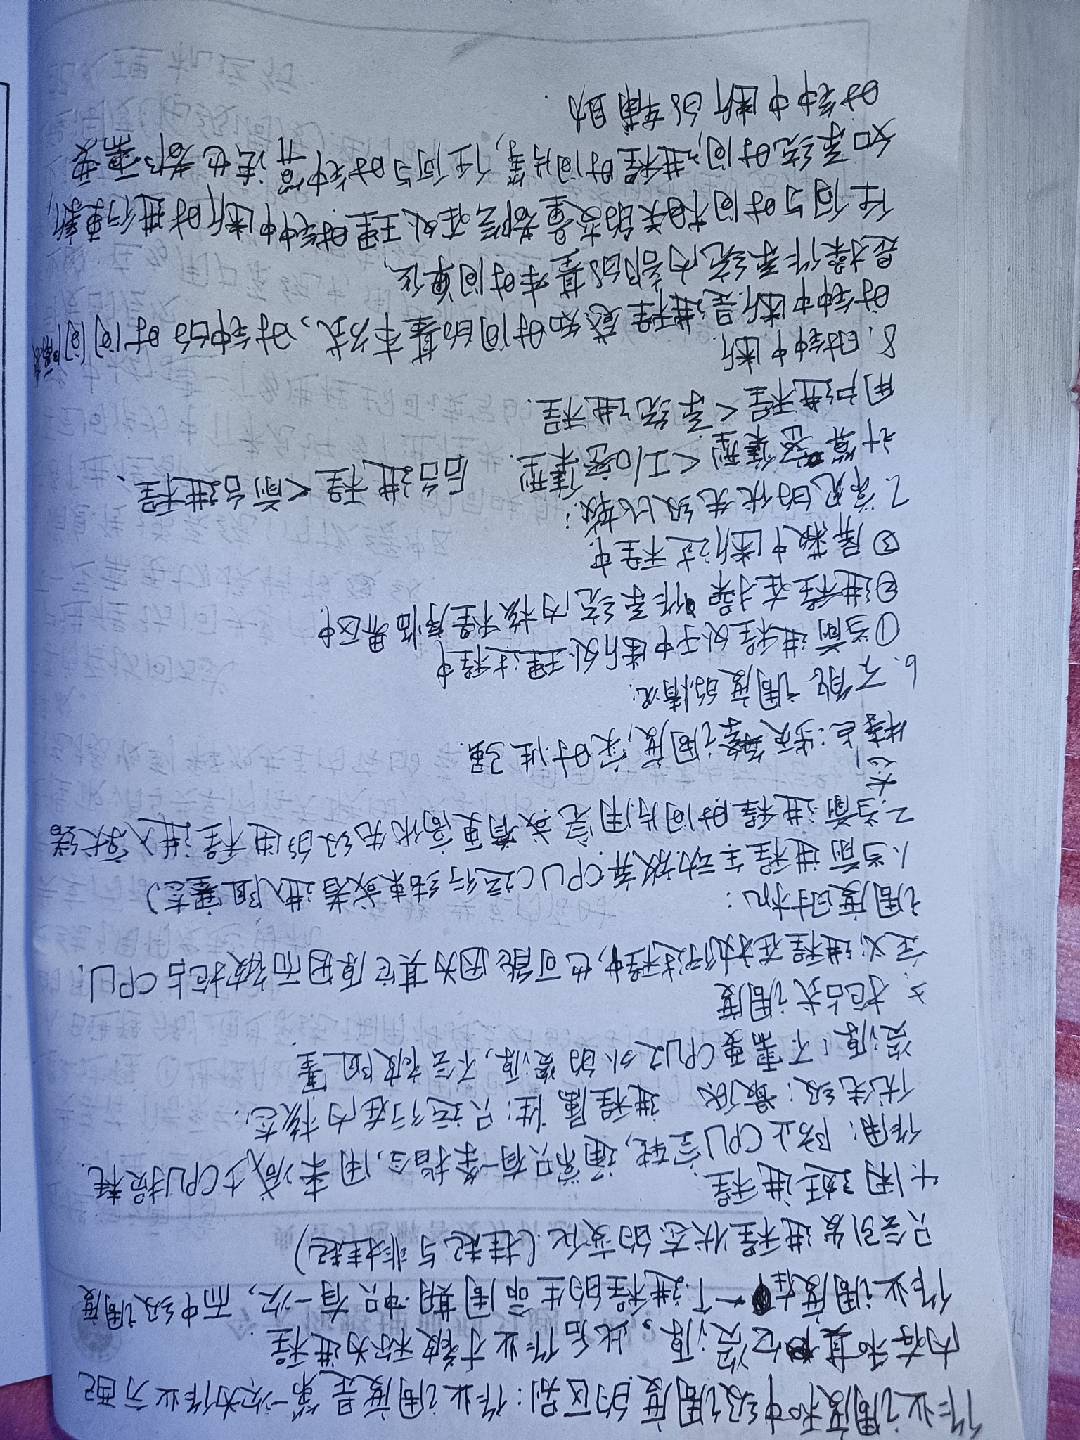 作业调度和中级调度的区别:作业调度是第一次为作业分配
内存和其它资源。此后作业才被称为进程.
作业调度在一个进程的生命周期中只有一次,而中级调度
只会引发进程状态的变化.(挂起与非挂起)
4.闲逛进程.
作用:防止CPU空转,通常只有一条指令,用来减少CPU损耗.
优先级:最低 进程属性:只运行在内核态.
资源:不需要CPU之外的资源,不会被阻塞.
5.抢占式调度
定义:进程在执行过程中,也可能因为其它原因而被抢占CPU.
调度时机:
1.当前进程主动放弃CPU(运行结束或者进入阻塞态)
2.当前进程时间片用完或有更高优先级的进程进入就绪
态,
特点:频繁调度,实时性强.
6.不能调度的情况:
①当前进程处于中断处理过程中
②进程在操作系统内核程序临界区中.
③屏蔽中断过程中.
7.常见的优先级比较:
计算密集型<I/O密集型. 后台进程<前台进程、
用户进程<系统进程.
8.时钟中断.
时钟中断是进程感知时间的基本方式、时钟的时间间隔
是操作系统内部的基本时间单位.
任何与时间相关的变量都会在处理时钟中断时进行更新,
如系统时间,进程时间片等,任何与时钟算法也都需要
时钟中断的辅助.